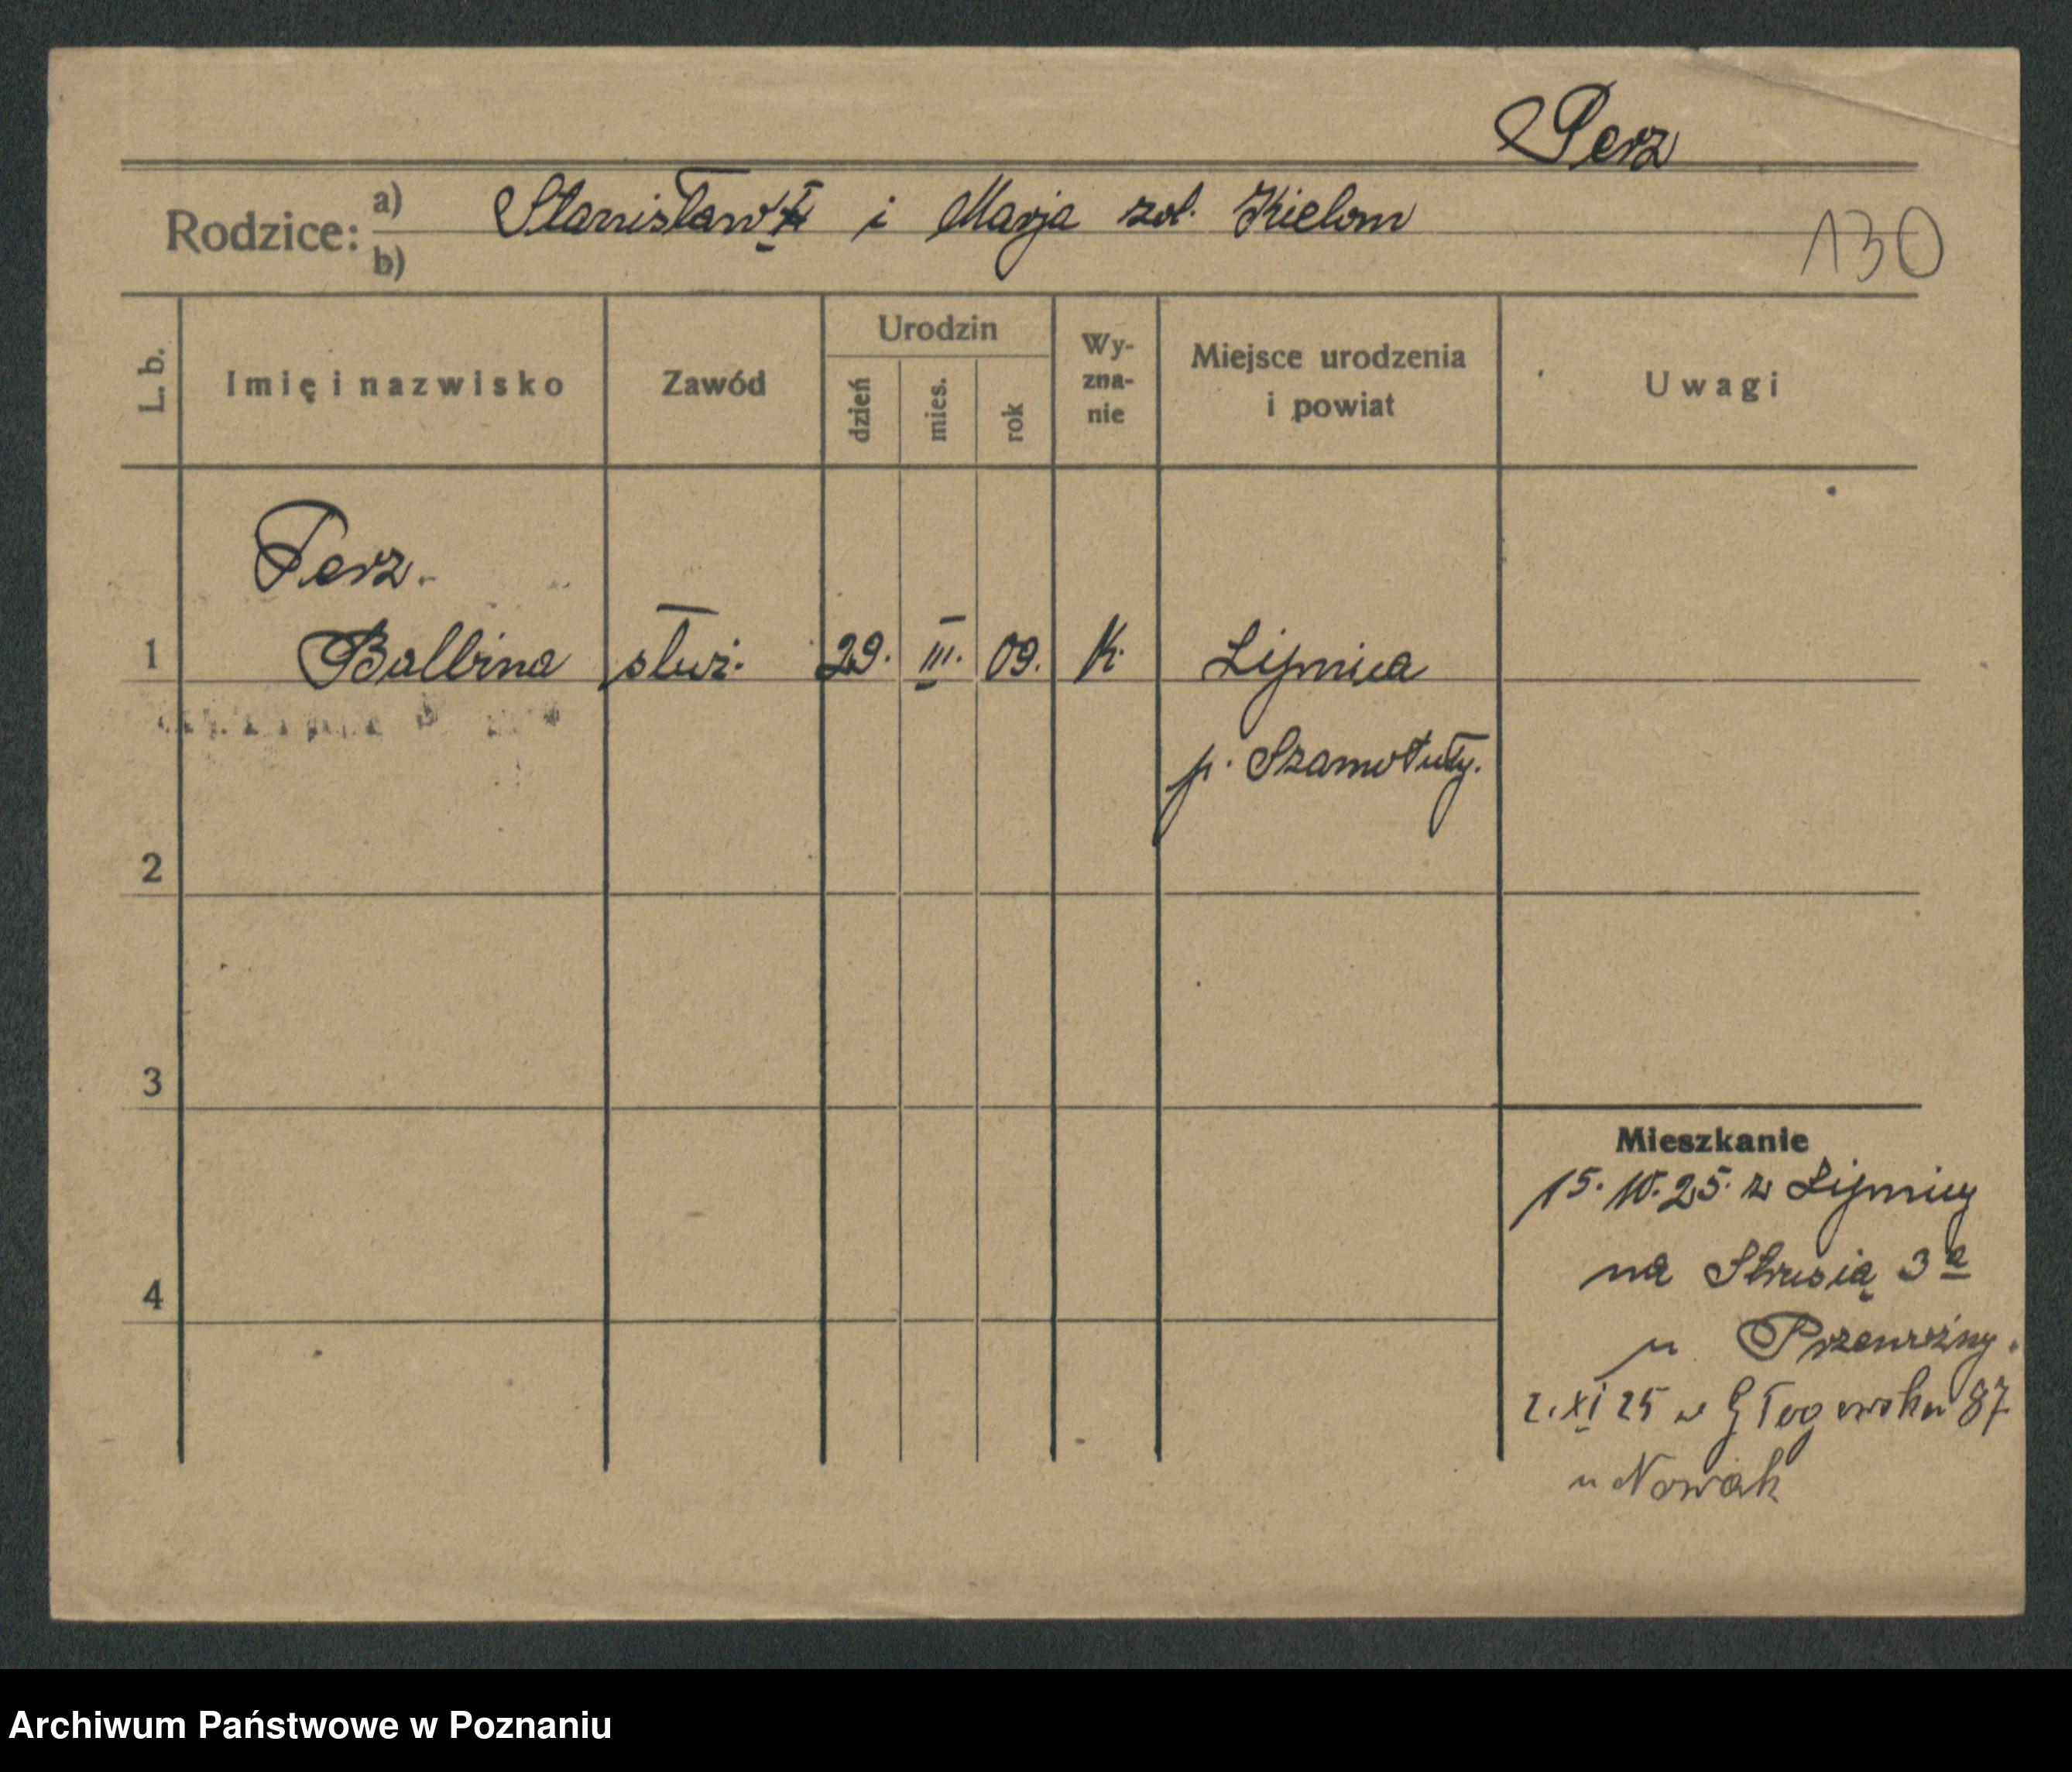 Perz
Rodzice: a) Stanisław i Marja zd. Kielom
b)
130
L. b.
Imię i nazwisko
Zawód
Urodzin
dzień
mies.
rok
Wy-
zna-
nie
Miejsce urodzenia
i powiat
Uwagi
Perz.
1 Balbina służ. 29. III. 09. K. Lipnica
p. Szamotuły.
2
3
4
Mieszkanie
15.10.25. z Lipnicy
na Strusią 3a
u
2.XI 25 w Głogowska 87
u Nowak
Archiwum Państwowe w Poznaniu